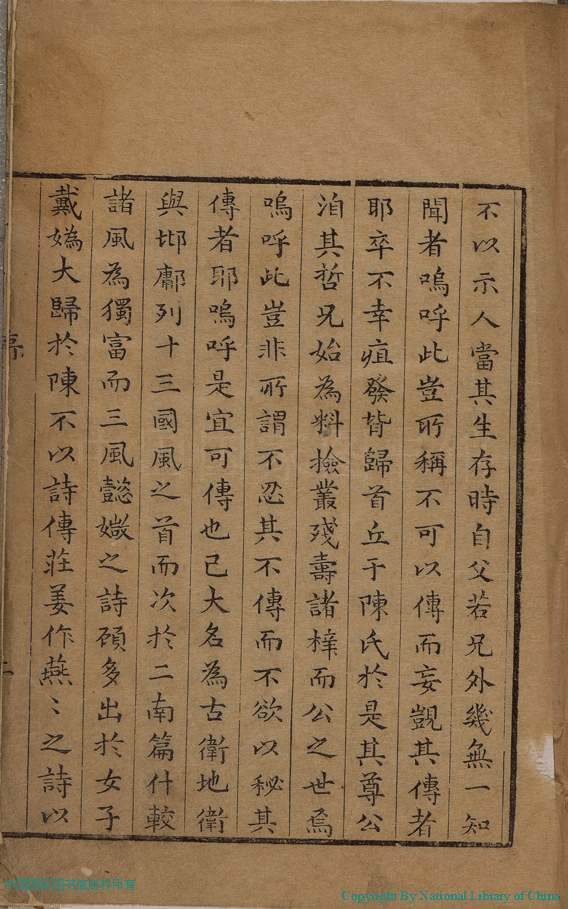 不以示人當其生存時自父若兄外幾無一知
聞者嗚呼此豈所稱不可以傳而妄覬其傳者
耶卒不幸疽發背歸首丘于陳氏於是其尊公
洎其哲兄始為料撿叢殘壽諸梓而公之世焉
嗚呼此豈非所謂不忍其不傳而不欲以秘其
傳者耶嗚呼是宜可傳也已大名為古衛地衛
與邶鄘列十三國風之首而次於二南篇什較
諸風為獨富而三風懿媺之詩碩多出於女子
戴媯大歸於陳不以詩傳莊姜作燕〻之詩以
序
二
Copyright By National Library of China